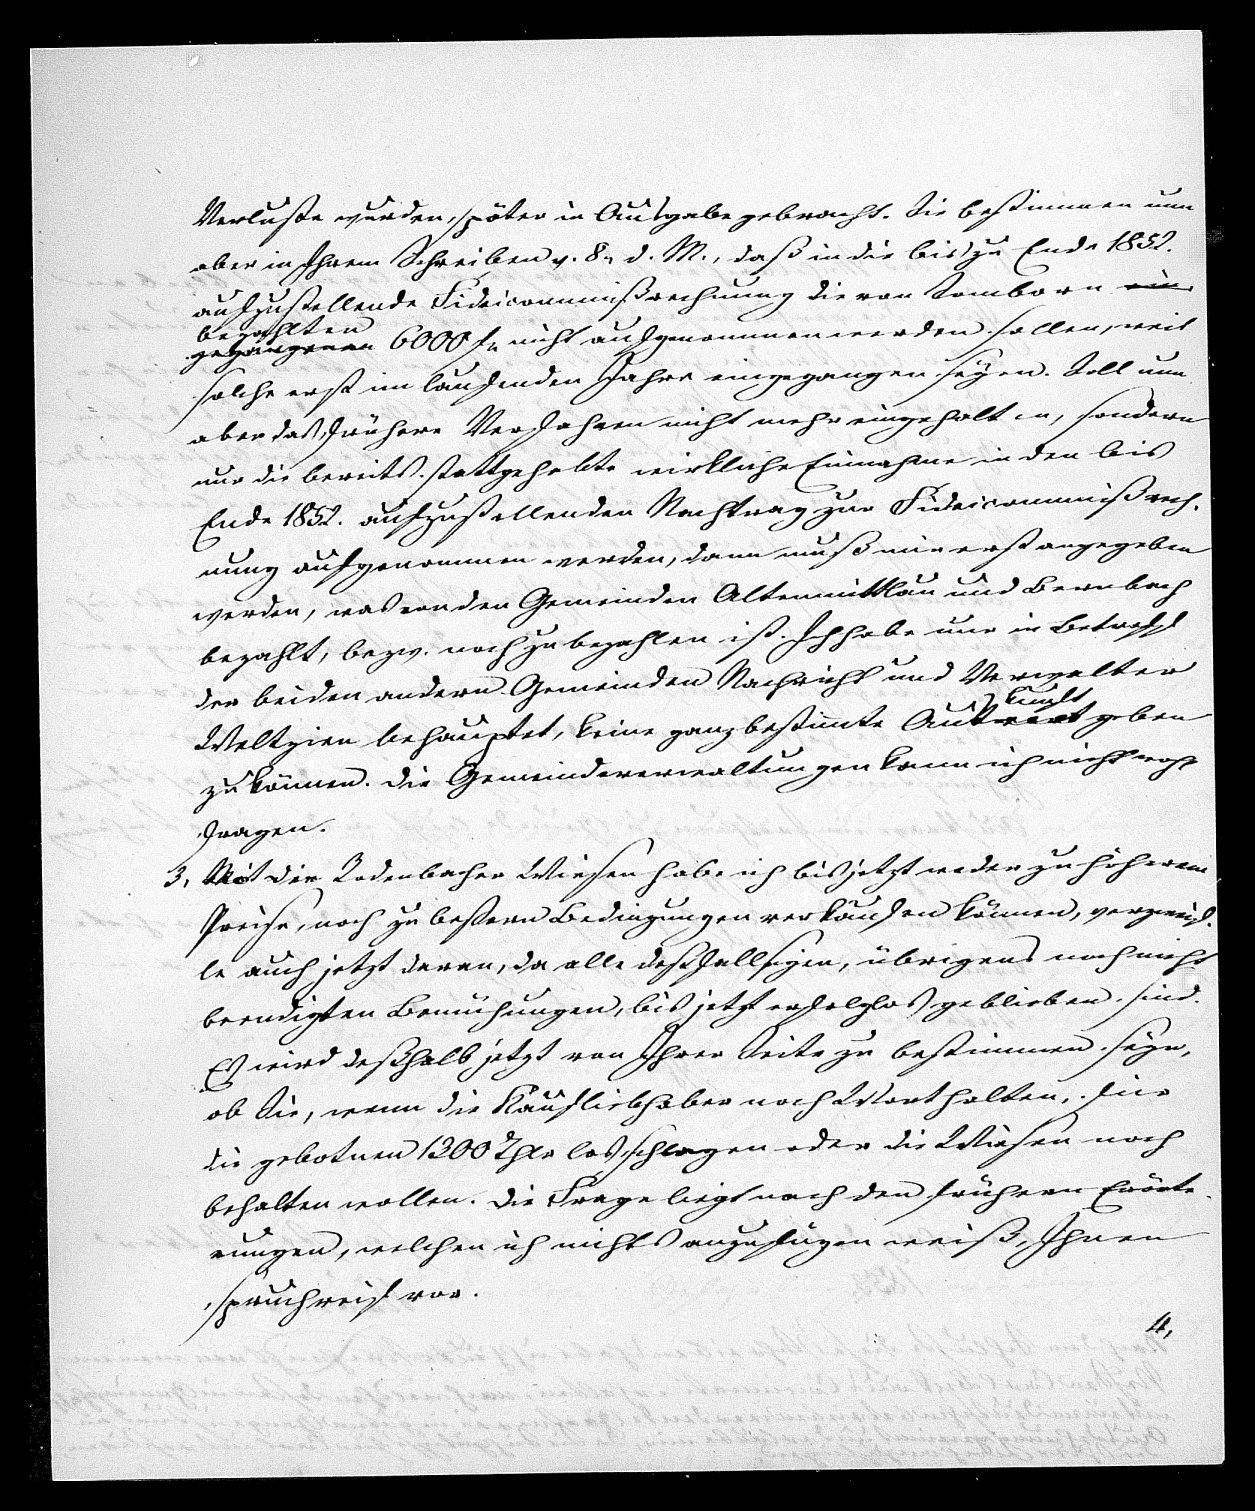 Verluste wurden, später in Ausgabe gebracht. Sie bestimmen nun
aber in Ihrem Schreiben v. 8. d. M., daß in die bis zu Ende 1852.
aufzustellende Fideicommißrechnung die von Somborn ein
bezahlten
gegangenen 6000 f. nicht aufgenommen werden sollen, weil
solche erst im laufenden Jahre eingegangen seyen. Soll nun
aber das frühere Verfahren nicht mehr eingehalten, sondern
nur die bereits stattgehabte wirkliche Einnahme in den bis
Ende 1852. aufzustellenden Nachtrag zur Fideicommißrech-
nung aufgenommen werden, dann muß mir erst angegeben
werden, was von den Gemeinden Altenmittlau und Bernbach
bezahlt, bezw. noch zu bezahlen ist. Ich habe nur in Betreff
der beiden andern Gemeinden Nachricht und Verwalter
Weltzien behauptet, keine ganz bestimmte Auskunft geben
zu können. Die Gemeindeverwaltungen kann ich nicht wohl
fragen.
3, Mit die Rodenbacher Wiesen habe ich bis jetzt weder zu höherem
Preise, noch zu bessern Bedingungen verkaufen können, verzweif-
le auch jetzt daran, da alle deßfallsigen, übrigens noch nicht
beendigten Bemühungen, bis jetzt erfolglos geblieben sind.
Es wird deßhalb jetzt von Ihrer Seite zu bestimmen seyn,
ob Sie, wenn die Kaufliebhaber noch Wort halten, für
die gebotnen 1300 Thlr losschlagen oder die Wiesen noch
behalten wollen. Die Frage liegt nach den frühern Erörte-
rungen, welchen ich nichts anzufügen weiß, Ihnen
spruchreif vor.
4,